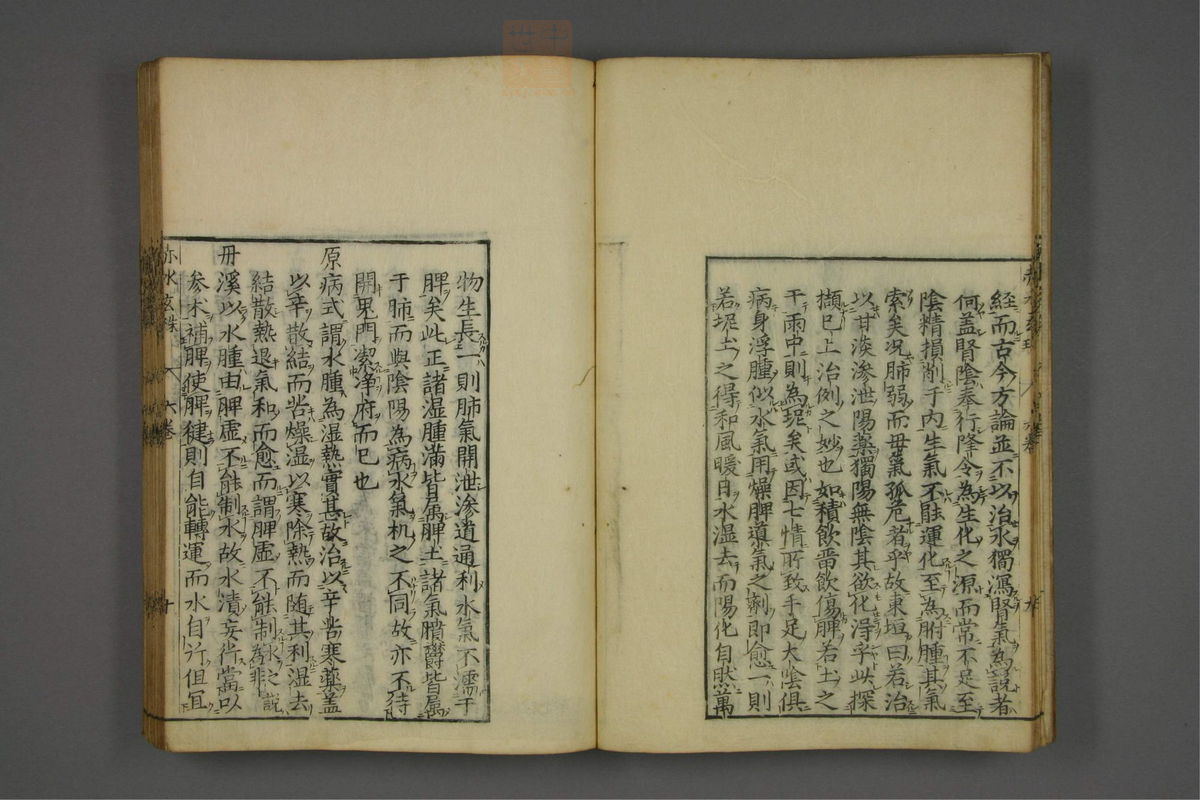 經而古今方論並不以治水獨瀉腎氣為說者
何蓋腎陰奉行降令為生化之源而常不足至
陰精損削于内生氣不能運化至為胕腫其氣
索矣况肺弱而母氣孤危者乎故東垣曰若治
以甘淡滲泄陽藥獨陽無陰其欲化得乎此探
擷已上治例之妙也如積飲畱飲傷脾若土之
于雨中則為坭矣或因七情所致手足太陰俱
病身浮腫似水氣用燥脾導氣之劑即愈一則
若坭土之得和風暖日水湿去而陽化自然萬
物生長一則肺氣開泄滲道通利水氣不濡于
脾矣此正諸湿腫滿皆属脾土諸氣膹鬱皆属
于肺而與陰陽為病水氣机之不同故亦不待
開鬼門㓗净府而已也
原病式謂水腫為湿熱實甚故治以辛苦寒藥蓋
以辛散結而苦燥湿以寒除熱而随其利湿去
結散熱退氣和而愈而謂脾虚不能制水之說非
丹溪以水腫由脾虚不能制水故水漬妄行當以
参术補脾使脾健則自能轉運而水自行但宜
赤水玄珠
六卷
十